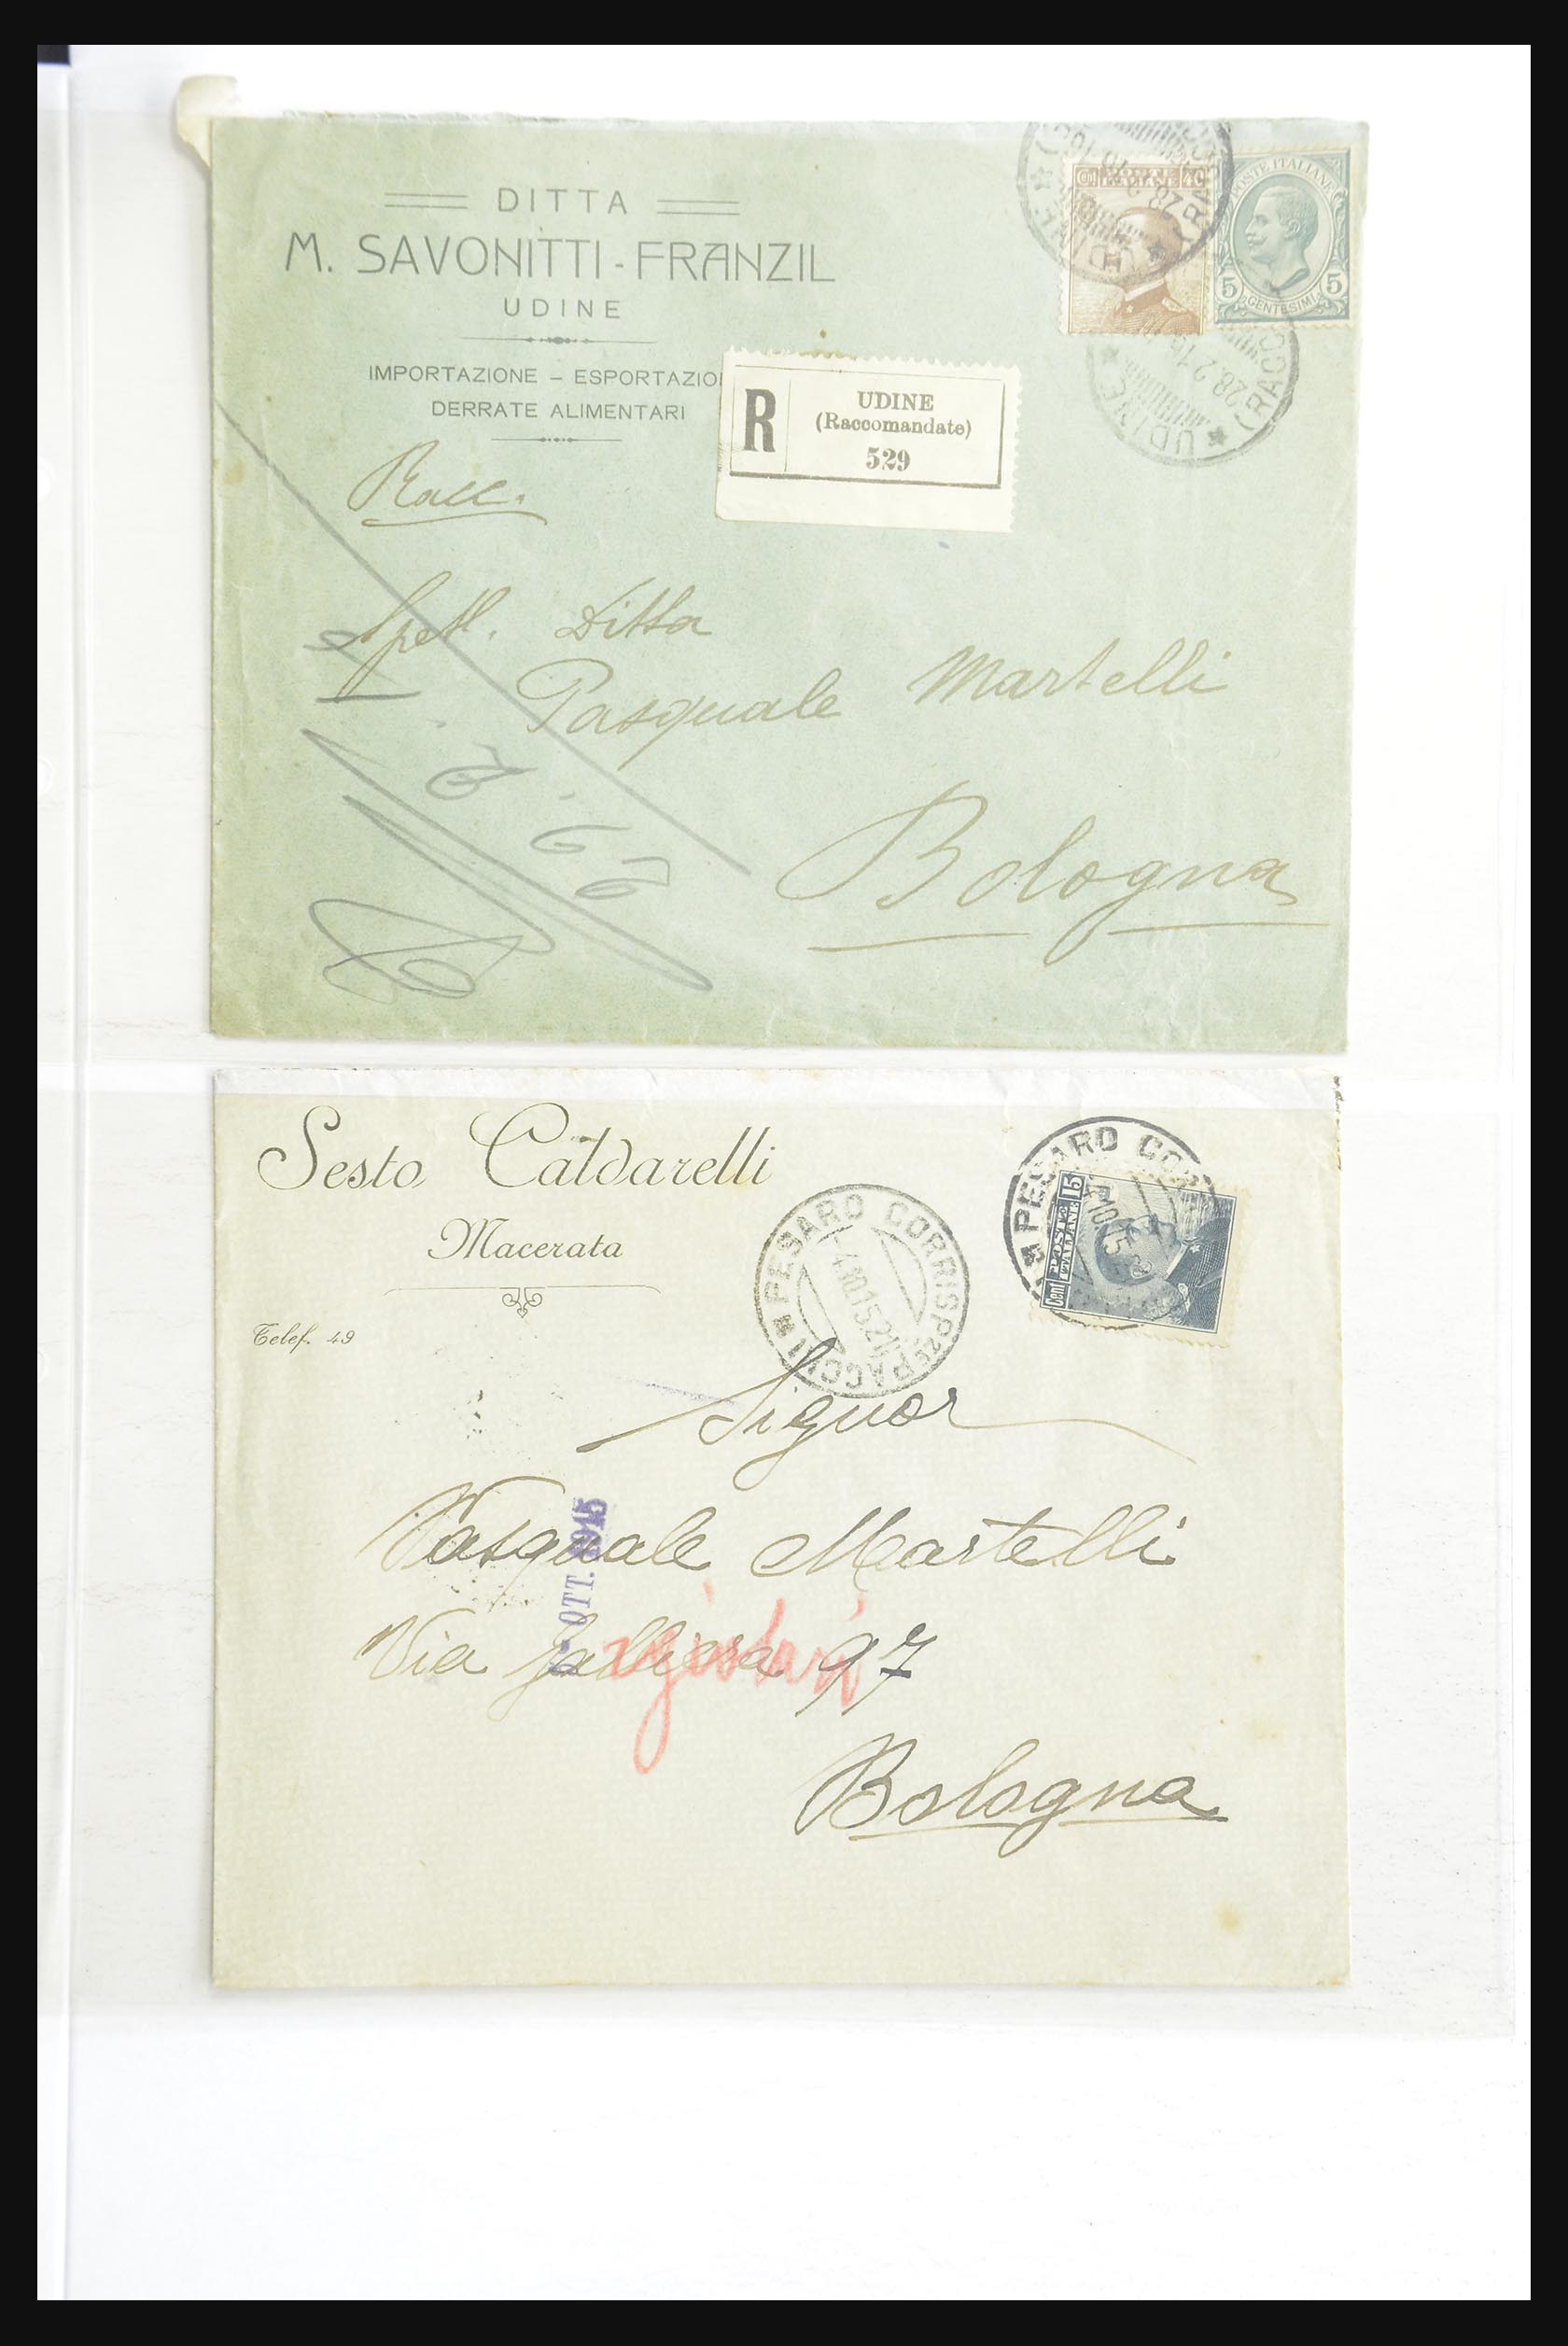 DITTA
M. SAVONITTI-FRANZIL
UDINE
IMPORTAZIONE – ESPORTAZIO
DERRATE ALIMENTARI
Racc.
R
UDINE
(Raccomandate)
529
Cent POSTE ITALIANE 40
POSTE ITALIANE
5 CENTESIMI 5
UDINE
UDINE (RACC
28.2.16
Spett. Ditta
Pasquale Martelli
Bologna
Sesto Caldarelli
Macerata
Telef. 49
PESARO CORRISP. PACCHI
4.10.15.21
PESARO COR
10.15
Cent POSTE ITALIANE 15
Signor
Pasquale Martelli
OTT. 1915
Via Galliera 97
Bologna